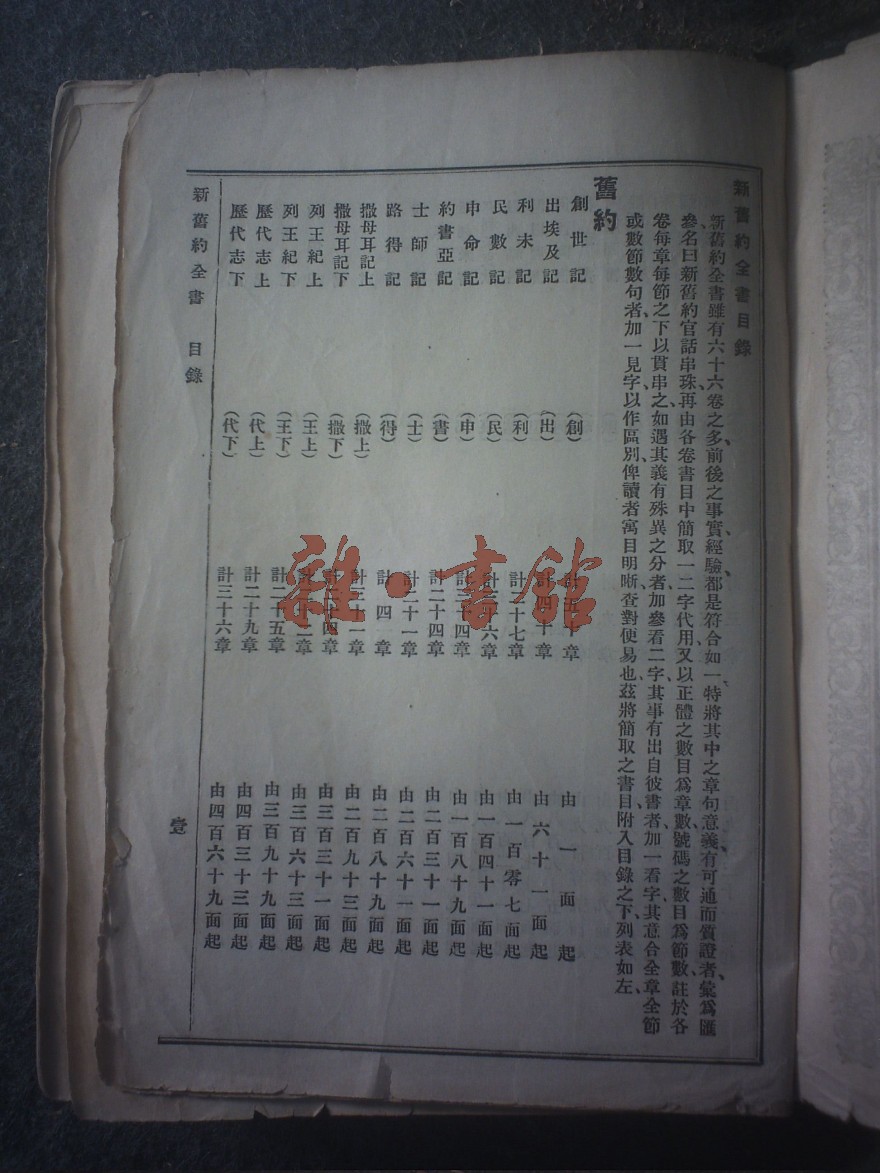 新舊約全書目錄
新舊約全書雖有六十六卷之多、前後之事實經驗、都是符合如一、特將其中之章句意義、有可通而質證者、彙爲匯
參、名曰新舊約官話串珠、再由各卷書目中簡取一二字代用、又以正體之數目爲章數、號碼之數目爲節數、註於各
卷每章每節之下以貫串之、如遇其義有殊異之分者、加參看二字、其事有出自彼書者、加一看字、其意合全章全節
或數節數句者、加一見字、以作區別、俾讀者寓目明晰、查對便易也、茲將簡取之書目、附入目錄之下、列表如左、
舊約
創世記 (創) 計五十章 由一面起
出埃及記 (出) 計四十章 由六十一面起
利未記 (利) 計二十七章 由一百零七面起
民數記 (民) 計三十六章 由一百四十一面起
申命記 (申) 計三十四章 由一百八十九面起
約書亞記 (書) 計二十四章 由二百三十一面起
士師記 (士) 計二十一章 由二百六十一面起
路得記 (得) 計四章 由二百八十九面起
撒母耳記上 (撒上) 計三十一章 由二百九十三面起
撒母耳記下 (撒下) 計二十四章 由三百三十一面起
列王紀上 (王上) 計二十二章 由三百六十三面起
列王紀下 (王下) 計二十五章 由三百九十九面起
歷代志上 (代上) 計二十九章 由四百三十三面起
歷代志下 (代下) 計三十六章 由四百六十九面起
新舊約全書 目錄
壹
雜·書館